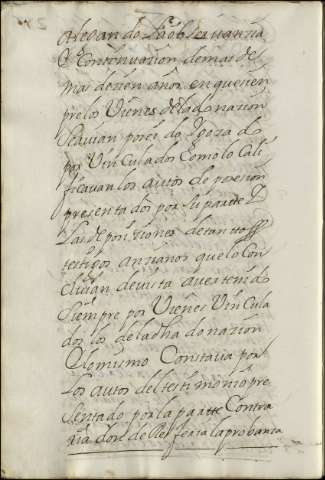 alegando la obserbanzia
Continuazion de mas de
mas de zien años en que sien
pre los Vienes de la donazion
se avian poseido Y goza do
por Vin Culados Como lo Cali
ficavan los autos de posesion
presenta dos por su partte Y
las de posiziones de tantos
testigos anzianos que lo Con
cluian de vista aver tenido
siempre por Vienes Vin Cula
dos los de la dha donazion
Y lo mismo Constavia por
los autos del testimonio pre
sentado por la partte Contra
ria donde se la probanza